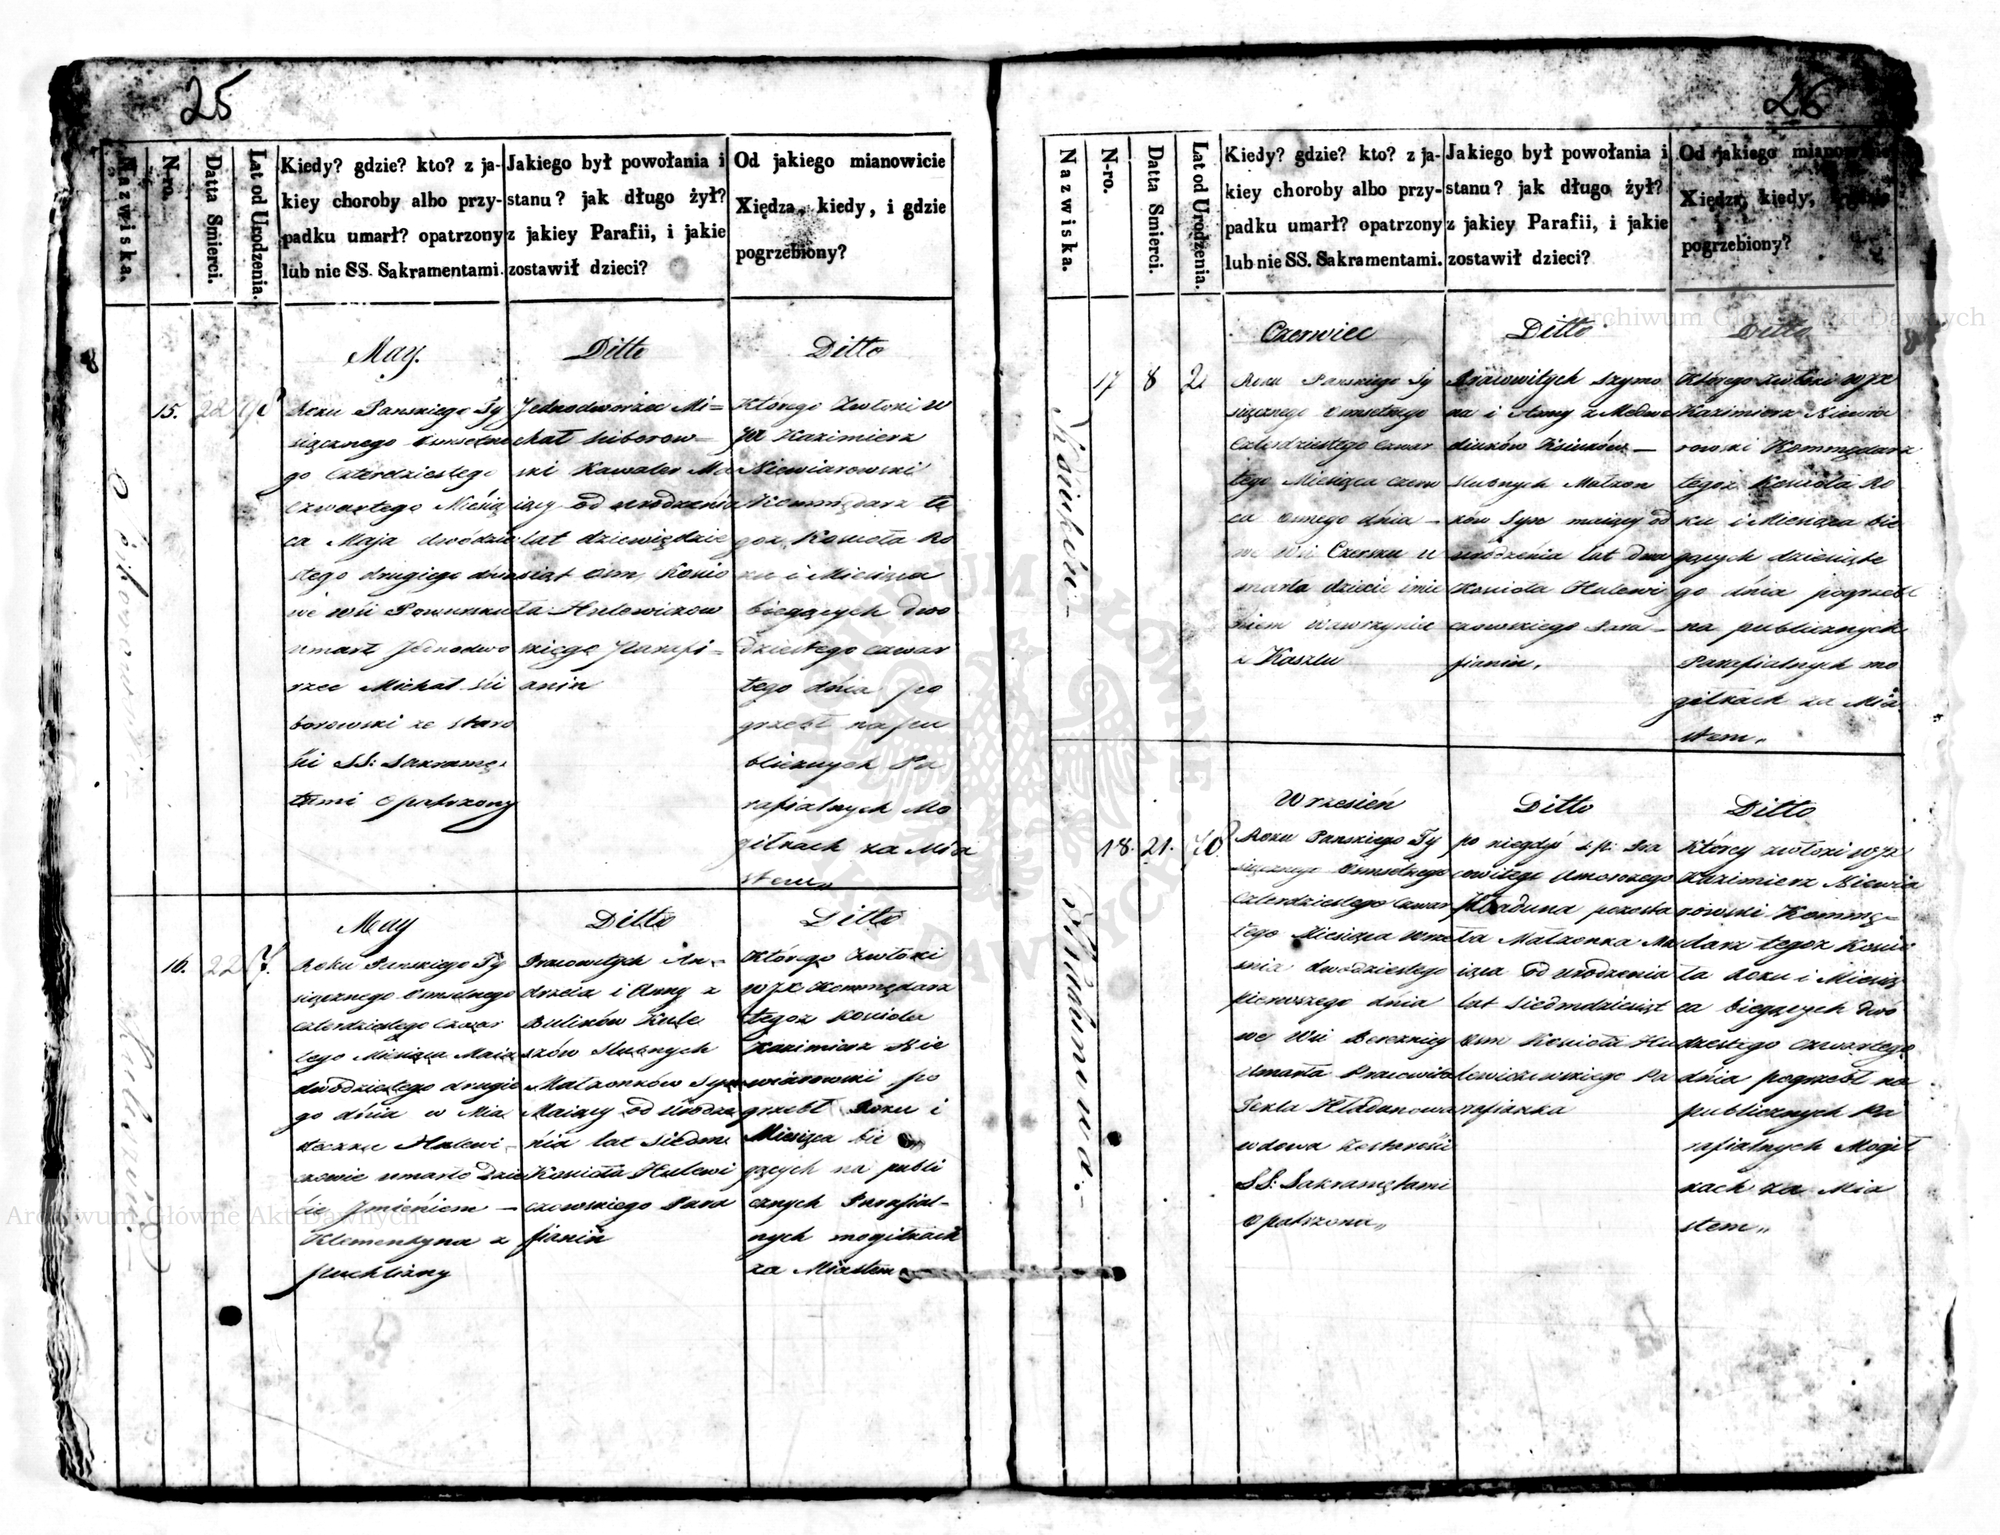 25
Nazwiska.
N-ro.
Datta Smierci.
Lat od Urodzenia.
Kiedy? gdzie? kto? z ja-
kiey choroby albo przy-
padku umarł? opatrzony
lub nie SS. Sakramentami.
Jakiego był powołania i
stanu? jak długo żył?
z jakiey Parafii, i jakie
zostawił dzieci?
Od jakiego mianowicie
Xiędza, kiedy, i gdzie
pogrzebiony?
15.
22
May.
Roku Panskiego Ty
siącznego Osmsetne
go Czterdziestego
Czwartego Miesią
ca Maja dwódzie
stego drugiego dnia
we wsi
umarł Jednodwo
rzec Michał Ści
borowski ze staro
ści SS: Sakramę
tami Opatrzony
Ditto
Jednodworzec Mi=
chał Sciborow=
ski Kawaler Ma
iący od urodzenia
lat dziewięćdzie
siąt Osm, Kościo
ła Hulewiczow
skiego Parafi=
anin
Ditto
Którego Zwłoki W
JX Kazimierz
Niewiarowski
Kommędarz te
goż Kościoła Ro
ku i Miesiąca
bieżących dwo
dziestego czwar
tego dnia po
grzebł na pu
blicznych Pa
rafialnych Mo
giłkach za Mia
stem„
16.
22
7.
May
Roku Panskiego Ty
siącznego Osmsetnego
Czterdziestego Czwar
tego Miesiąca Maia
dwódziestego drugie
go dnia w Mia
steczku Hulewi-
czowie umarło Dzie
cie Imieniem —
Klementyna z
puchliny
Ditto
Pracowitych An-
drzeia i Anny z
Bulików Kule
szów Slubnych
Małzonków Syn
Maiący od Urodze
nia lat Siedm
Kościoła Hulewi
czowskiego Para
fianin
Ditto
Którego Zwłoki
WJX Kommędarz
tegoż Kościoła
Kazimierz Nie
wiarowski po
grzebł Roku i
Miesiąca bie
żących na publi
cznych Parafial-
nych mogiłkach
za Miastem
26
Nazwiska.
N-ro.
Datta Smierci.
Lat od Urodzenia.
Kiedy? gdzie? kto? z ja-
kiey choroby albo przy-
padku umarł? opatrzony
lub nie SS. Sakramentami.
Jakiego był powołania i
stanu? jak długo żył?
z jakiey Parafii, i jakie
zostawił dzieci?
Od jakiego mianowicie
Xiędza, kiedy, i gdzie
pogrzebiony?
17
8
2
Czerwiec
Roku Panskiego Ty
siącznego Osmsetnego
Czterdziestego Czwar
tego Miesiąca Czerw
ca Osmego dnia —
we Wsi Czersku u
marło dziecie imie
niem Wawrzyniec
z Kaszlu
Ditto
Pracowitych Szymo
na i Anny z Medwe
diuków —
slubnych Małzon
ków Syn maiący od
urodzenia lat dwa
Kościoła Hulewi
czowskiego Para —
fianin.
Ditto
Którego zwłoki WJX
Kazimierz Niewia
rowski Kommędarz
tegoż Kościoła Ro
ku i Miesiąca bie
żących dziesiąte
go dnia pogrzebł
na publicznych
Parafialnych mo
giłkach za Mia
stem„
Hładunowa.-
18.
21.
Wrzesień
Roku Panskiego Ty
siącznego Osmsetnego
Czterdziestego Czwar
tego Miesiąca Wrze
śnia dwódziestego
pierwszego dnia
we Wsi Bereznicy
Umarła Pracowita
Tekla Hładunowa
wdowa ze starości
SS: Sakramętami
Opatrzona„
Ditto
po niegdyś s.p: Pra
cowitego
Hładuna pozosta
ła Małzonka Ma
iąca od urodzenia
lat Siedmdziesiąt
Osm Kościoła Hu
lewiczowskiego Pa
rafianka
Ditto
Którey zwłoki WJX
Kazimierz Niewia
rowski Kommę=
darz tegoż Kościo
ła Roku i Miesią
ca bieżących dwó
dziestego czwartego
dnia pogrzebł na
publicznych Pa
rafialnych Mogił
kach za Mia
stem„
Archiwum Główne Akt Dawnych
Archiwum Główne Akt Dawnych
ARCHIWUM GŁÓWNE AKT DAWNYCH